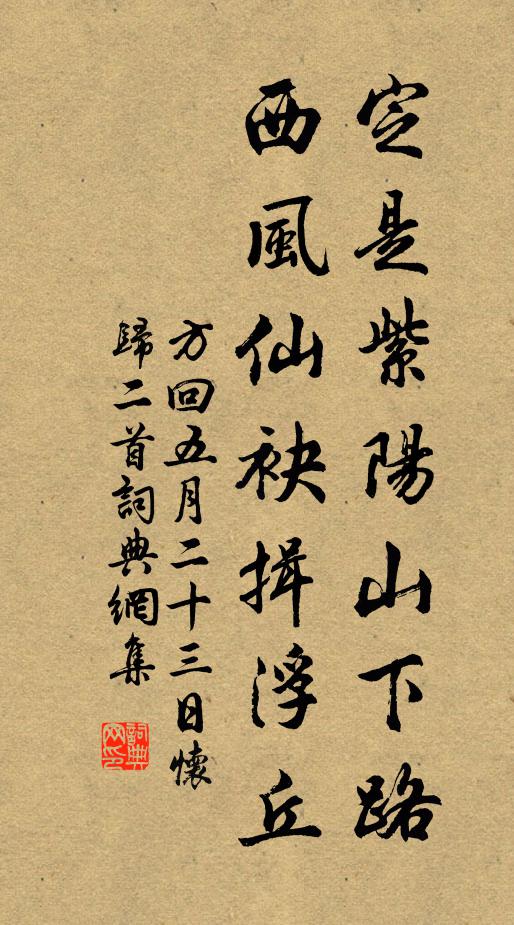 定是紫陽山下路
西風仙袂揖浮丘
方回五月二十三日懷
歸二首詞典網集
詞典網印